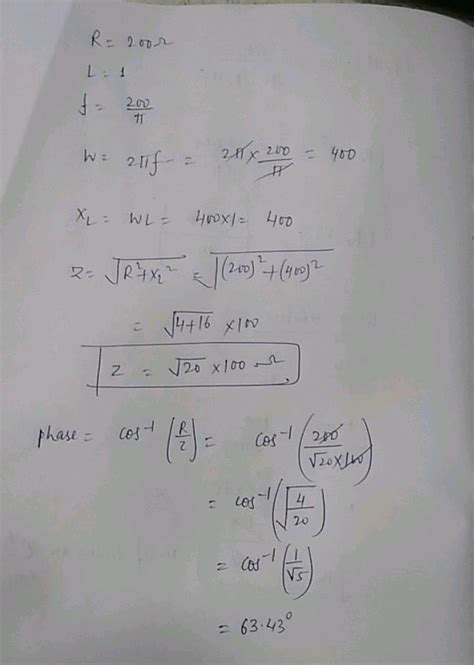 R = 200Ω
L = 1
f = 200/π
W = 2πf = 2π × 200/π = 400
XL = WL = 400×1 = 400
Z = √(R²+XL²) = √((200)²+(400)²)
= √(4+16) ×100
Z = √20 ×100 Ω
phase = cos⁻¹(R/Z) = cos⁻¹(200/(√20×100))
= cos⁻¹(√(4/20))
= cos⁻¹(1/√5)
= 63.43°